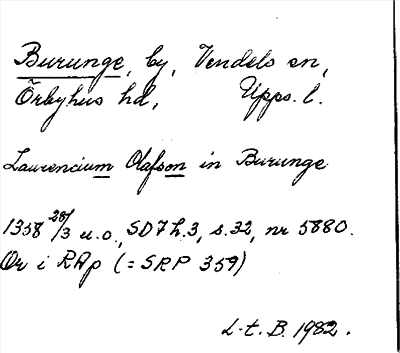 Burunge, by, Vendels sn,
Örbyhus hd, Upps. l.
Laurencium Olafson in Burunge
1358 28/3 u.o., SD7 h.3, s.32, nr 5880.
Or i RAp (= SRP 359)
L-t. B. 1982.